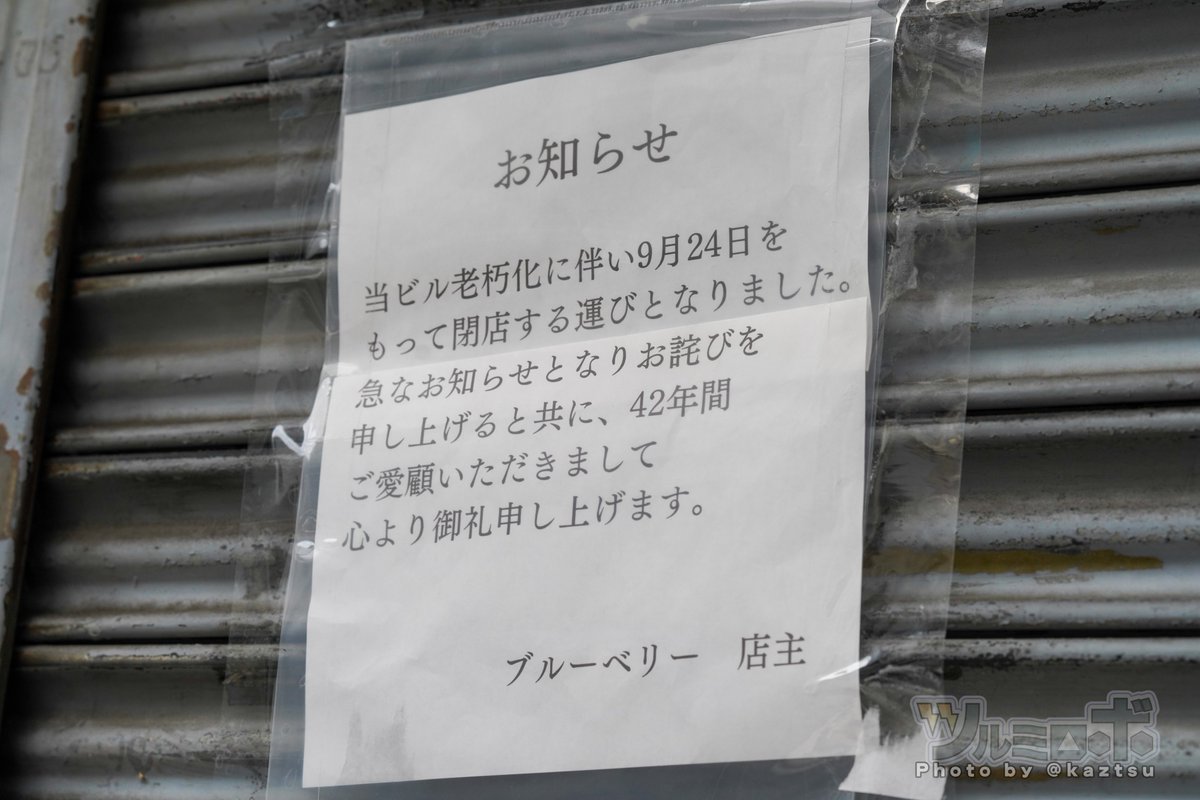 お知らせ
当ビル老朽化に伴い9月24日を
もって閉店する運びとなりました。
急なお知らせとなりお詫びを
申し上げると共に、42年間
ご愛顧いただきまして
心より御礼申し上げます。
ブルーベリー　店主
ツルミロボ
Photo by @kaztsu